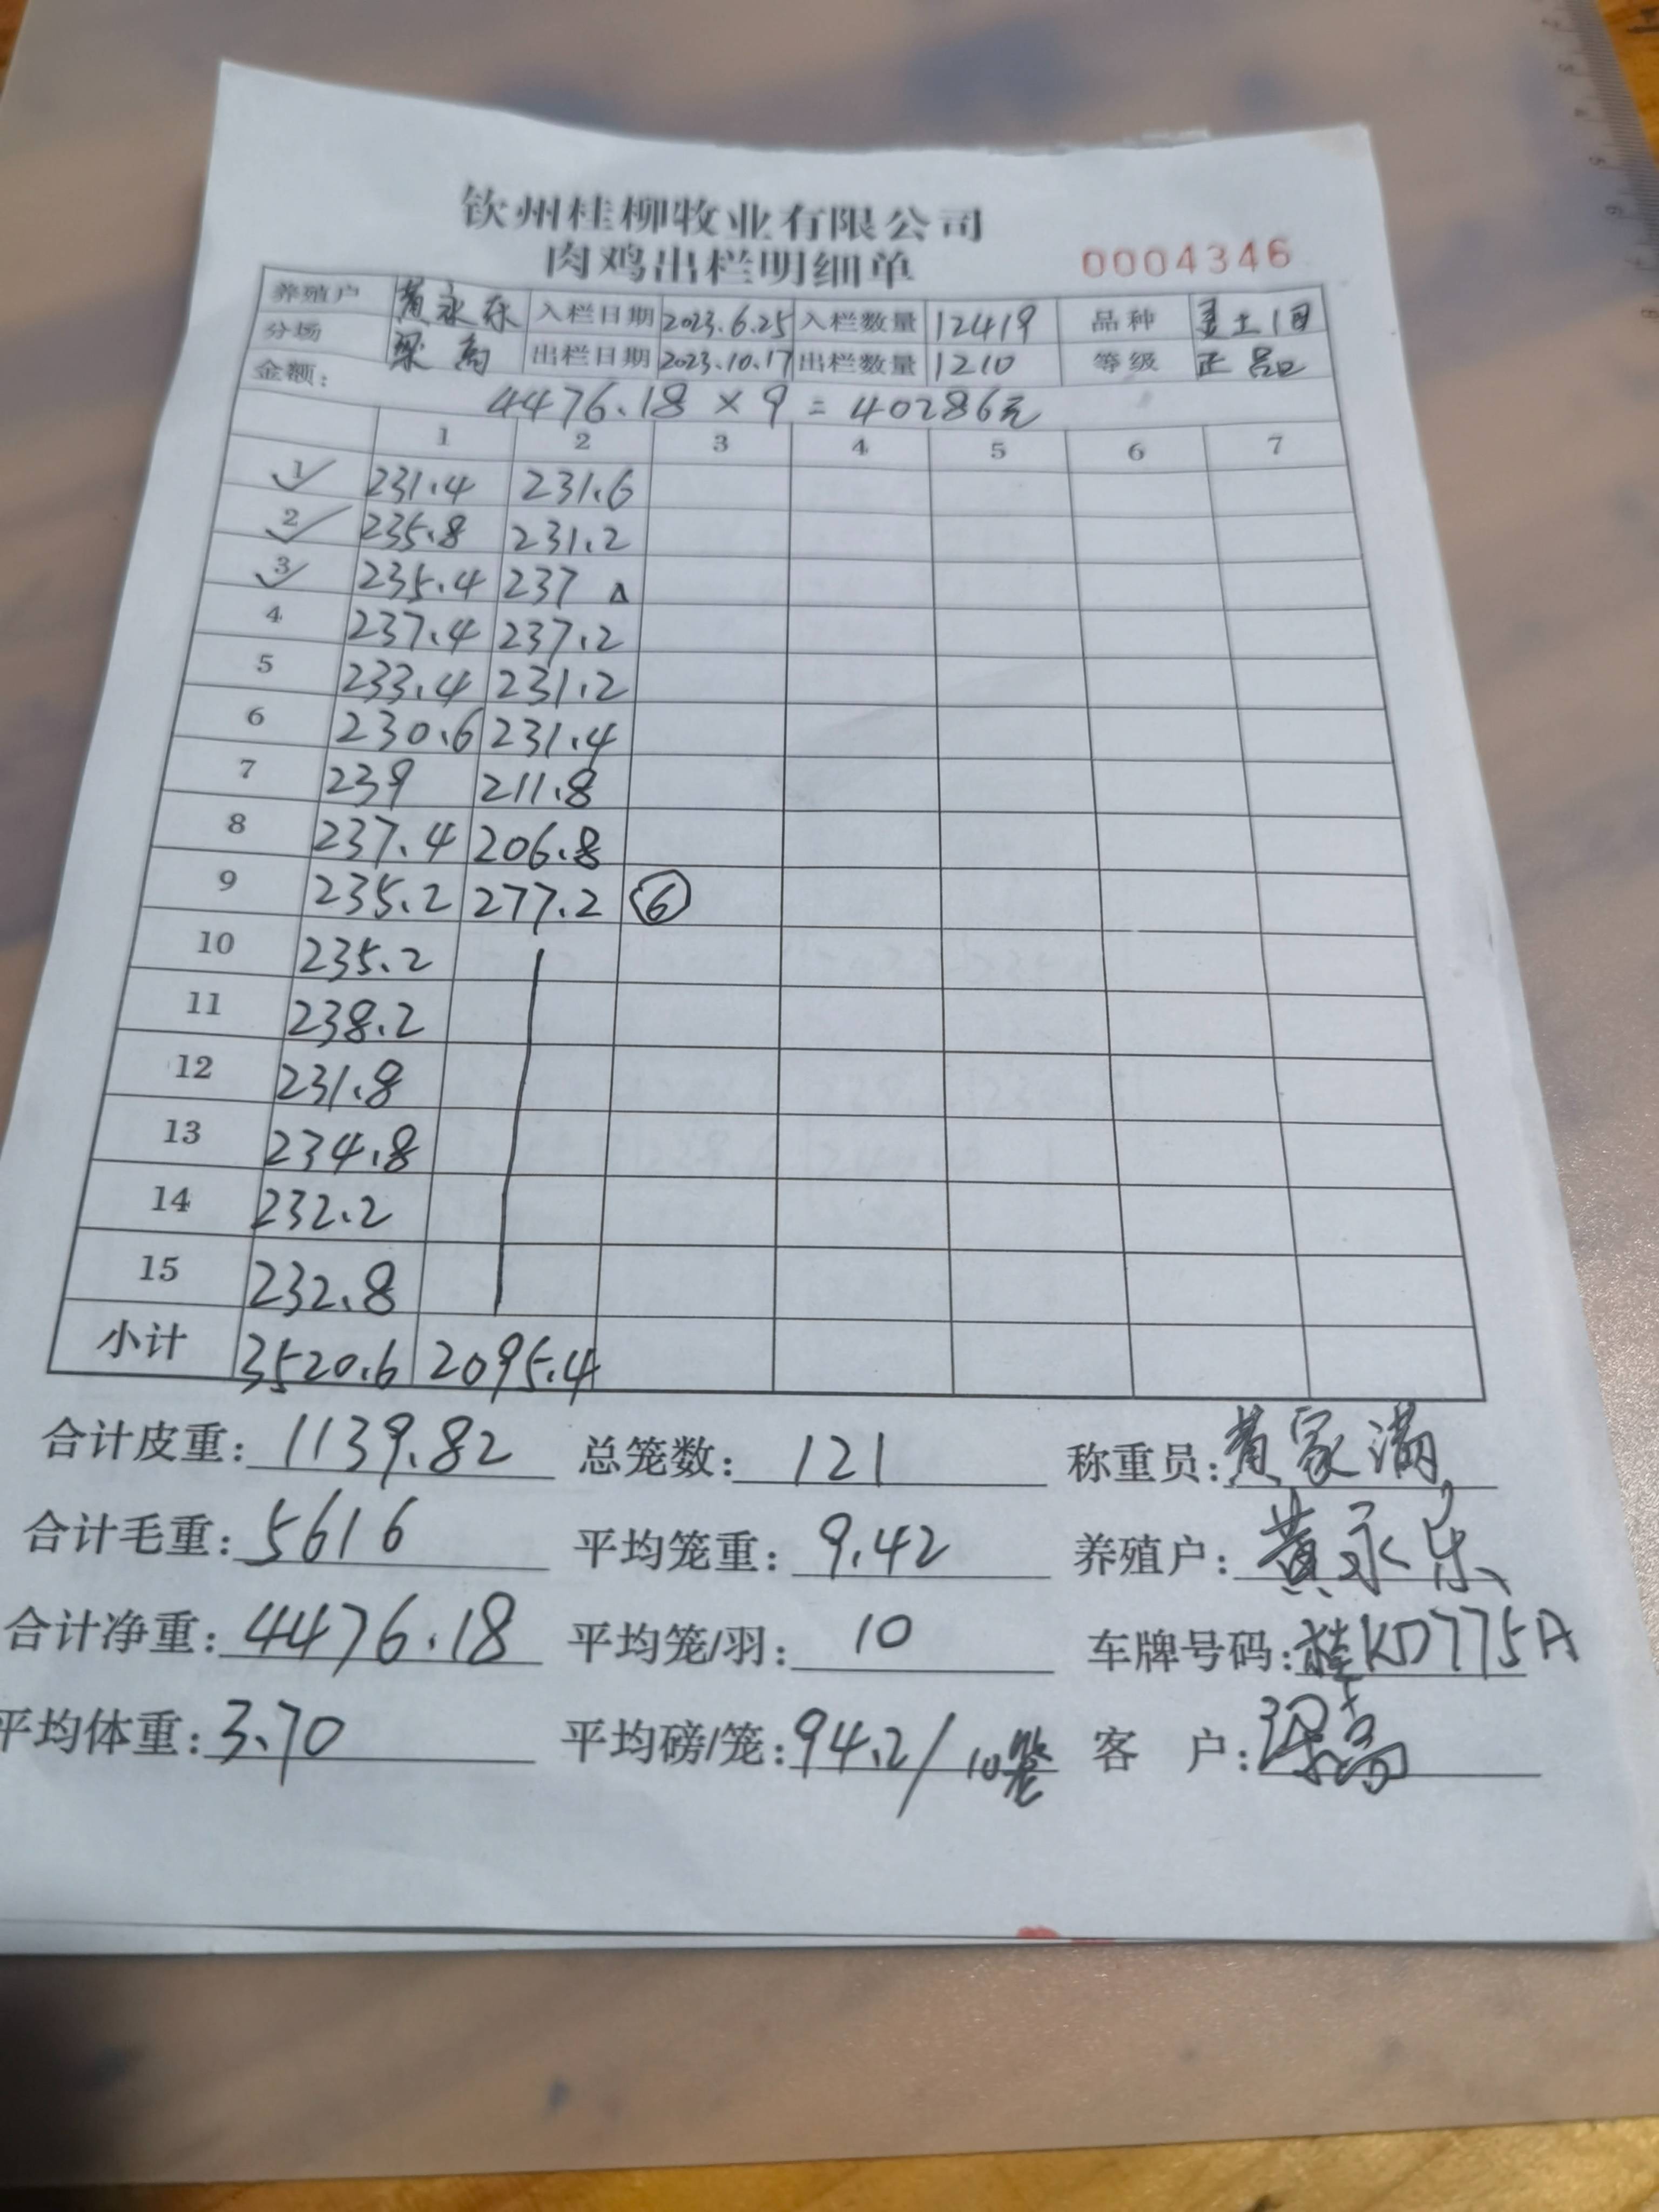 钦州桂柳牧业有限公司
肉鸡出栏明细单 0004346
养殖户 黄永乐 入栏日期 2023.6.25 入栏数量 12419 品种 土1
分场 梁高 出栏日期 2023.10.17 出栏数量 1210 等级 正品
金额: 4476.18 × 9 = 40286元
1 2 3 4 5 6 7
1 231.4 231.6
2 235.8 231.2
3 235.4 237 Δ
4 237.4 237.2
5 233.4 231.2
6 230.6 231.4
7 239 211.8
8 237.4 206.8
9 235.2 277.2 ⑥
10 235.2
11 238.2
12 231.8
13 234.8
14 232.2
15 232.8
小计 3520.6 2095.4
合计皮重: 1139.82 总笼数: 121 称重员: 黄家满
合计毛重: 5616 平均笼重: 9.42 养殖户: 黄永乐
合计净重: 4476.18 平均笼/羽: 10 车牌号码: 桂KD775A
平均体重: 3.70 平均磅/笼: 94.2/10笼 客 户: 梁高